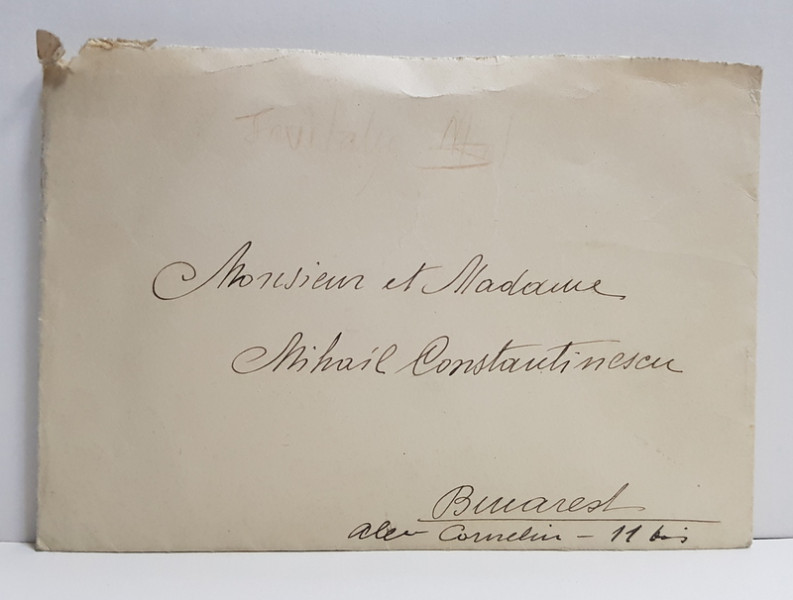 Monsieur et Madame
Mihail Constantinescu
Bucarest
alee Corneliu - 11 bis